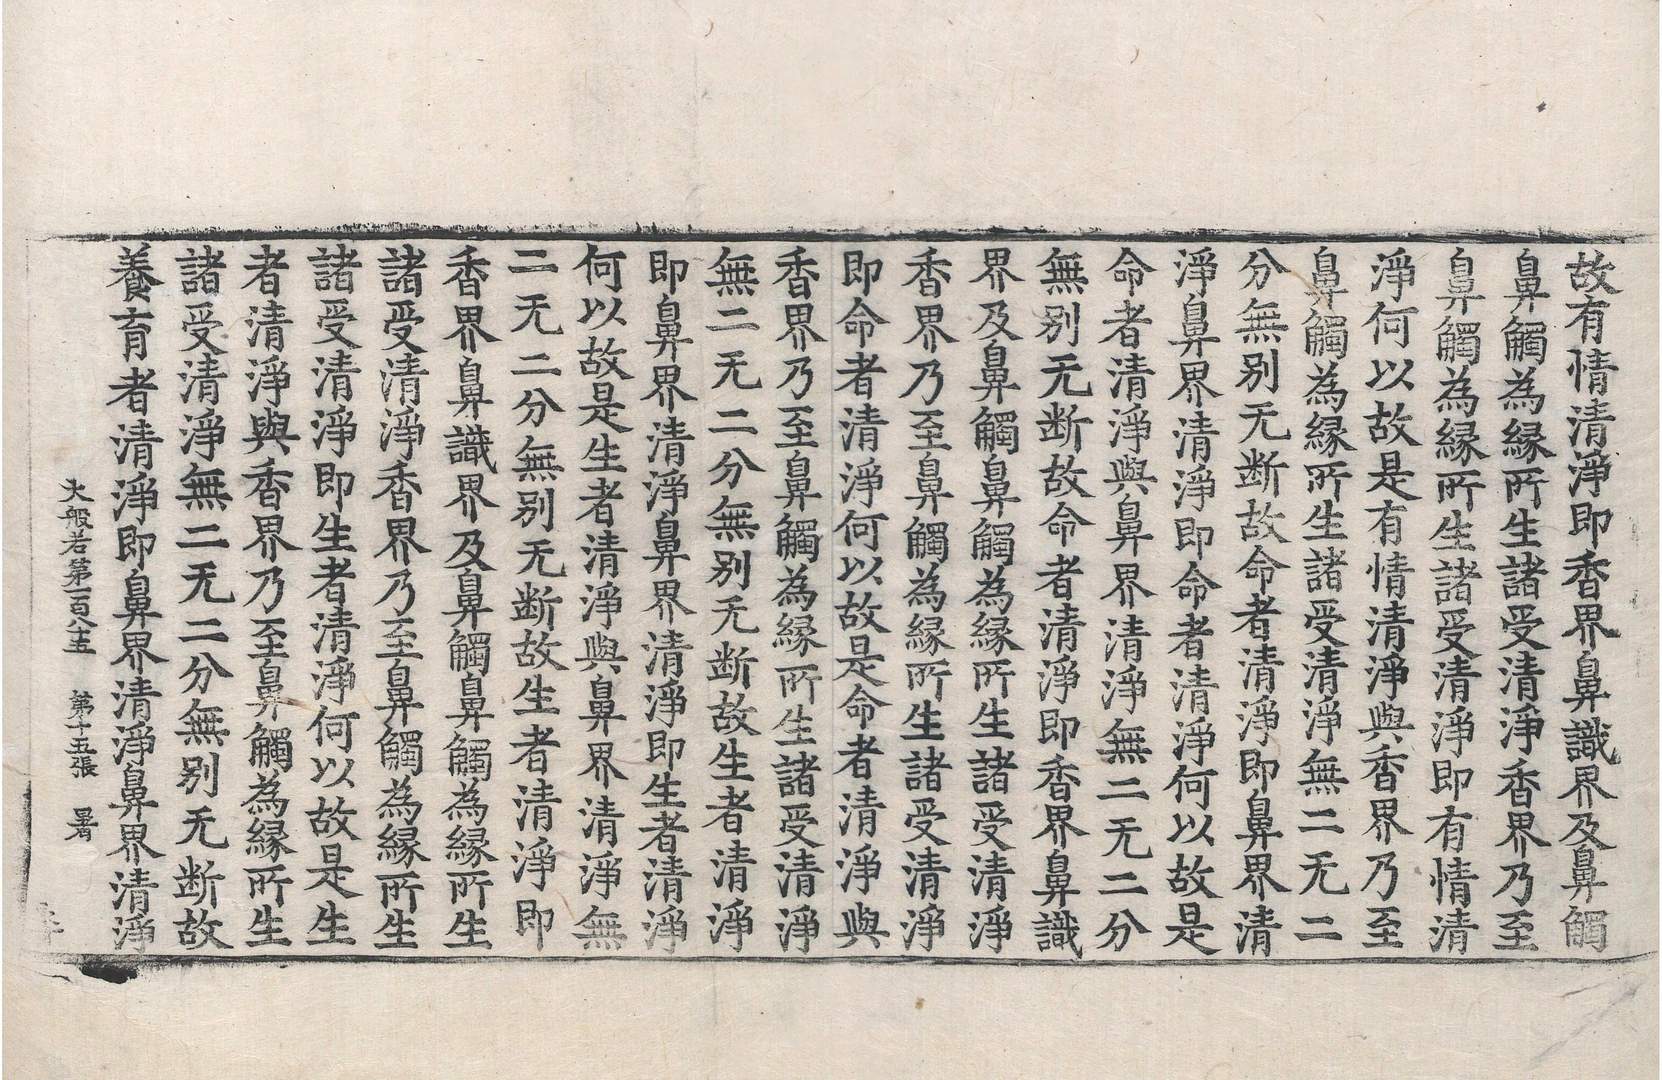 故有情清淨即香界鼻識界及鼻觸
鼻觸為縁所生諸受清淨香界乃至
鼻觸為縁所生諸受清淨即有情清
淨何以故是有情清淨與香界乃至
鼻觸為縁所生諸受清淨無二无二
分無别无断故命者清淨即鼻界清
淨鼻界清淨即命者清淨何以故是
命者清淨與鼻界清淨無二无二分
無别无断故命者清淨即香界鼻識
界及鼻觸鼻觸為縁所生諸受清淨
香界乃至鼻觸為縁所生諸受清淨
即命者清淨何以故是命者清淨與
香界乃至鼻觸為縁所生諸受清淨
無二无二分無别无断故生者清淨
即鼻界清淨鼻界清淨即生者清淨
何以故是生者清淨與鼻界清淨無
二无二分無别无断故生者清淨即
香界鼻識界及鼻觸鼻觸為縁所生
諸受清淨香界乃至鼻觸為縁所生
諸受清淨即生者清淨何以故是生
者清淨與香界乃至鼻觸為縁所生
諸受清淨無二无二分無别无断故
養育者清淨即鼻界清淨鼻界清淨
大般若第一百八十五 第十五張 暑